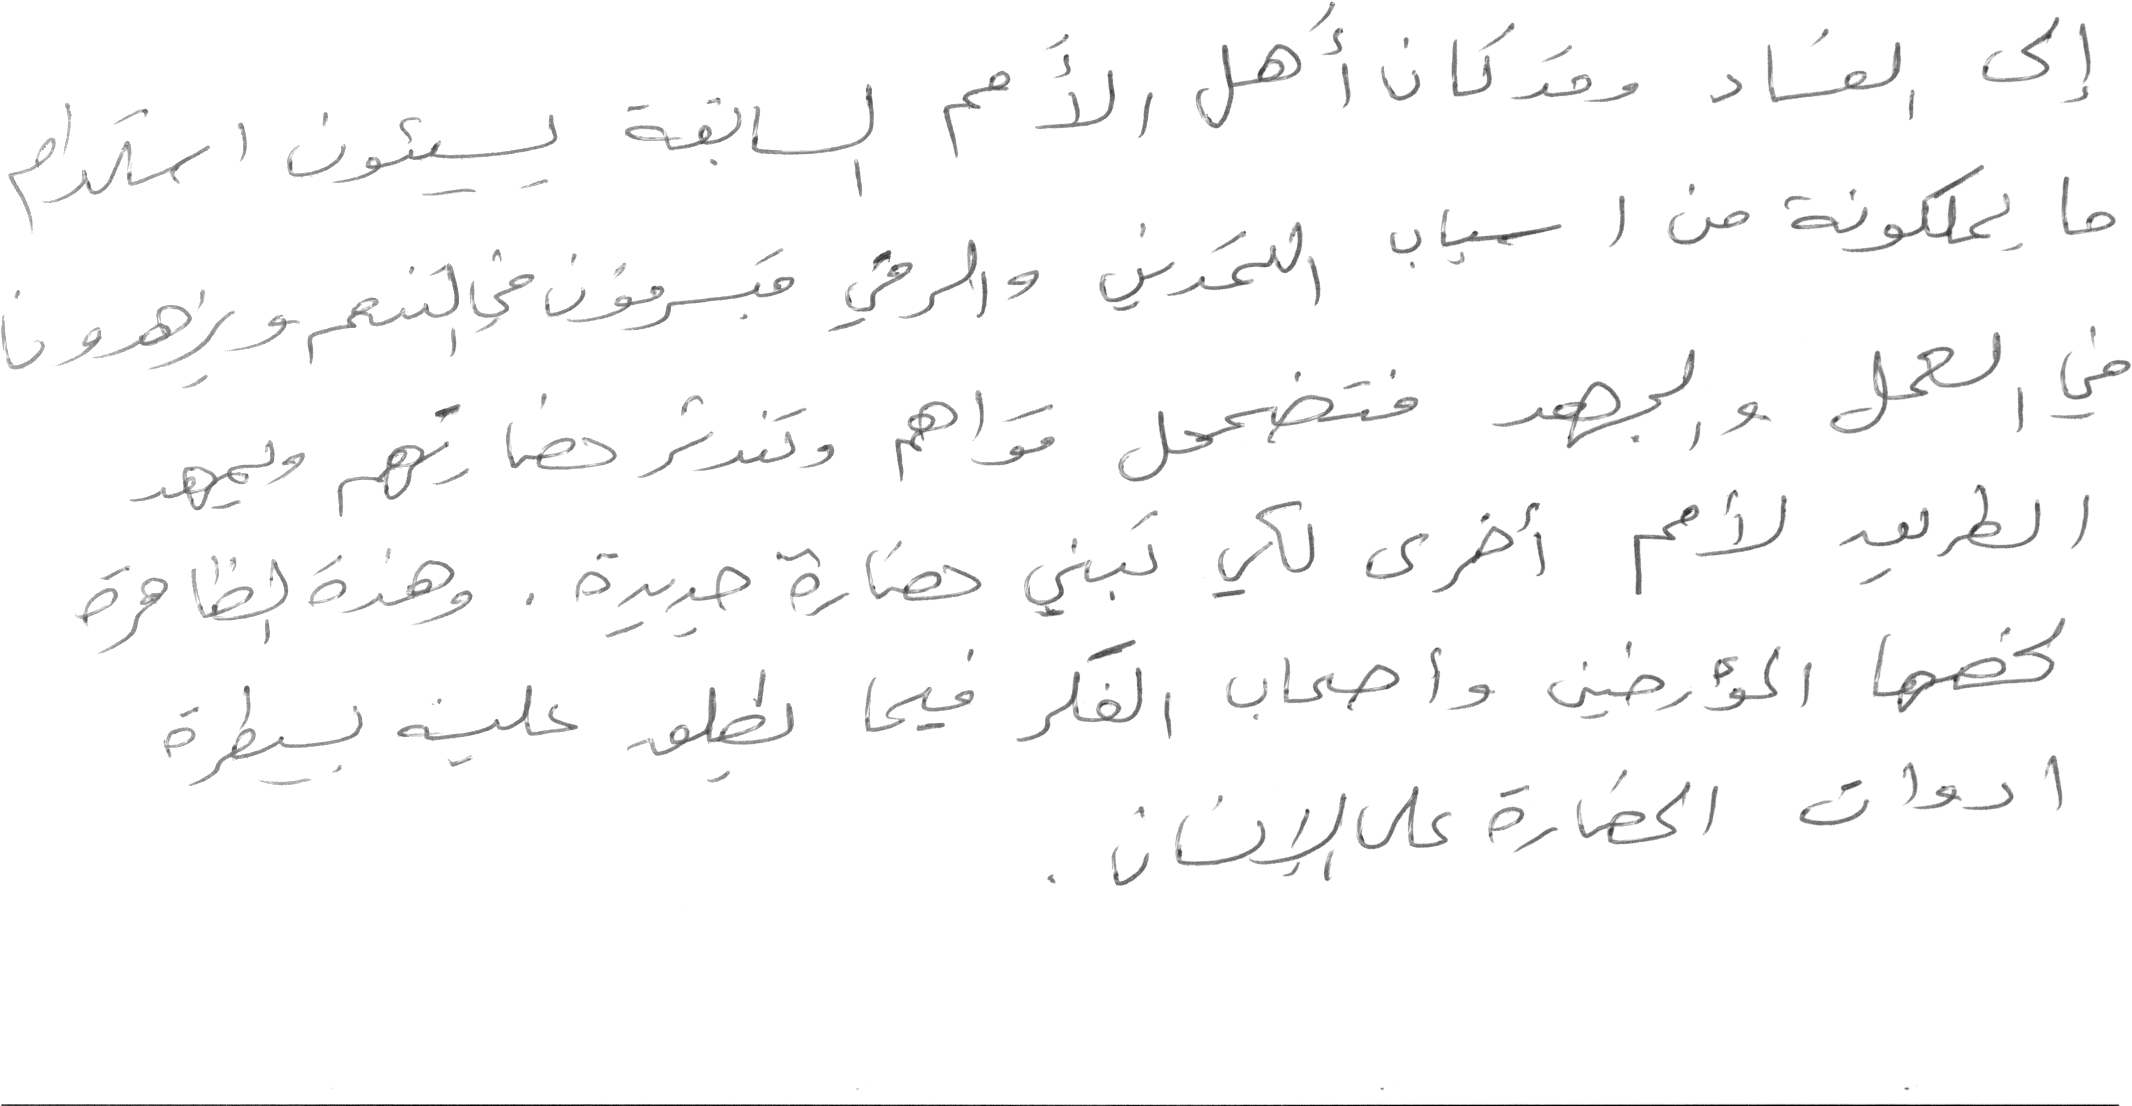 إلى الفساد وقد كان أهل الأمم السابقة يسيئون استخدام
ما يملكونة من اسباب التمدين والرقي فيسرفون في التنعم ويزهدون
في العمل والجهد فتضمحل قواهم وتندثر حضارتهم ويمهد
الطريق لأمم أخرى لكي تبني حضارة جديدة . وهذة الظاهرة
لخصها المؤرخين وأصحاب الفكر فيما نطلق علية بسيطرة
ادوات الحضارة على الإنسان .